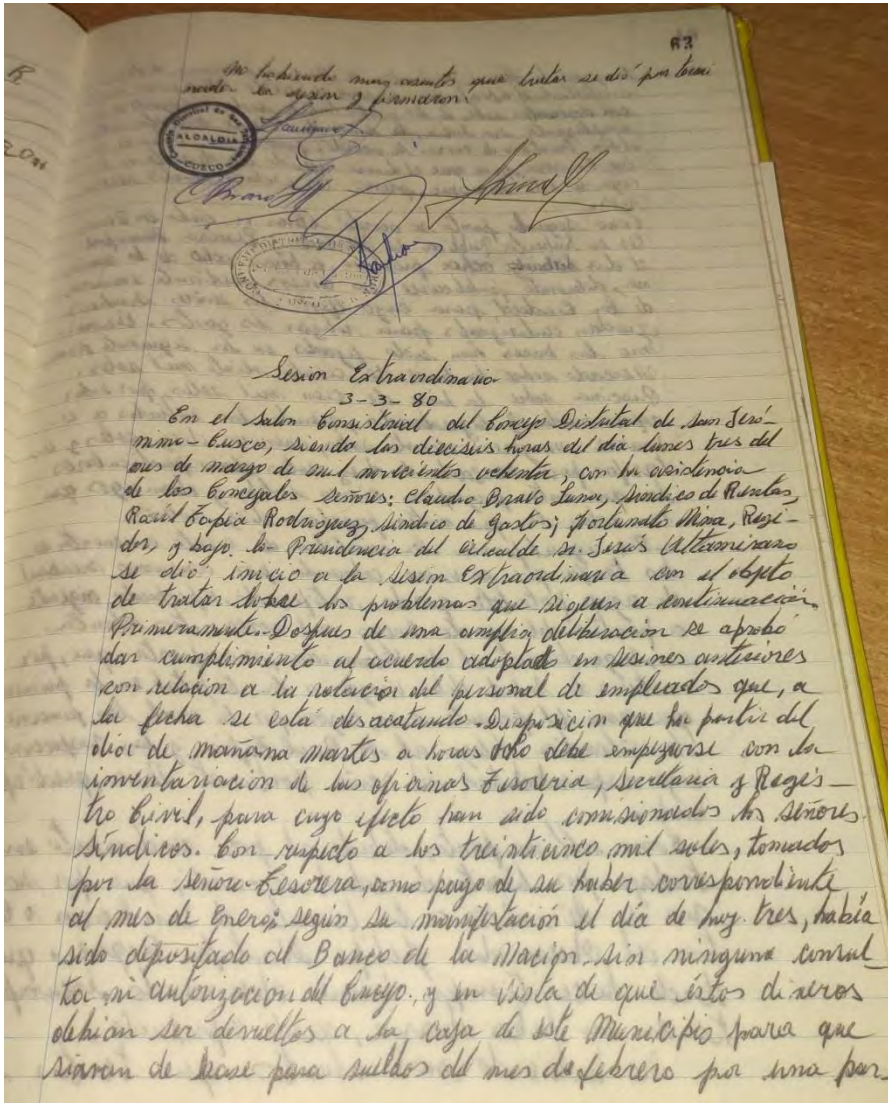 63
No habiendo mas asuntos que tratar se dió por termi
nada la sesión y firmaron.
ALCALDIA
CUSCO
Sesion Extraordinaria
3-3-80
En el Salon Consistorial del Concejo Distrital de San Jeró-
nimo-Cusco, siendo las dieciseis horas del dia lunes tres del
mes de marzo de mil novecientos ochenta, con la asistencia
de los Concejales señores: Claudio Bravo Luna, Síndico de Rentas,
Raúl Tapia Rodriguez, síndico de gastos; Fortunato Mina, Regi-
dor, y bajo la Presidencia del alcalde sr. Jesús Altamirano
se dió inicio a la sesión Extraordinaria con el objeto
de tratar sobre los problemas que sigeren a continuación.
Primeramente. Despues de una amplia deliberación se aprobó
dar cumplimiento al acuerdo adoptado en sesines anteriores
con relación a la rotación del personal de empleados que, a
la fecha se está desacatando. Disposición que ha partir del
dia de mañana martes a horas ocho debe empezarse con la
inventariación de las oficinas Tesoreria, Secretaria y Regis-
tro Civil, para cuyo efecto han sido comisionados los señores
síndicos. Con respecto a los treinticinco mil soles, tomados
por la señora Tesorera, como pago de su haber correspondiente
al mes de Enero; según su manifestación el día de hoy tres, había
sido depositado al Banco de la Nación sin ninguna consul-
ta ni autorización del Concejo, y en vista de que éstos dineros
debian ser devueltos a la caja de este Municipio para que
sirvan de base para sueldos del mes de febrero por una par-